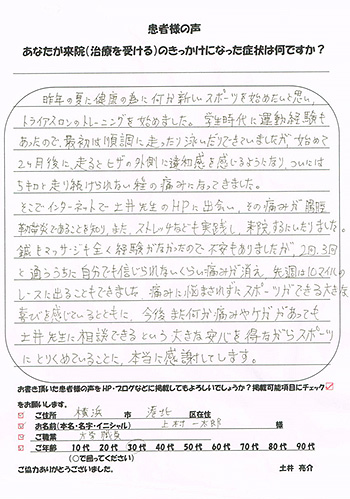 患者様の声
あなたが来院(治療を受ける)のきっかけになった症状は何ですか?
昨年の夏に健康の為に何か新しいスポーツを始めたいと思い、
トライアスロンのトレーニングを始めました。学生時代に運動経験も
あったので、最初は順調に走ったり泳いだりできていましたが、始めて
2ヶ月後に、走るとヒザの外側に違和感を感じるようになり、ついには
5キロと走り続けられない程の痛みになってきました。
そこでインターネットで土井先生のHPに出会い、その痛みが腸脛
靭帯炎であることを知り、また、ストレッチなども実践し、来院するにいたりました。
鍼もマッサージも全く経験がなかったので不安もありましたが、2回、3回
と通ううちに自分でも信じられないくらい痛みが消え、先週は10マイルの
レースに出ることもできました。痛みに悩まされずにスポーツができる大きな
喜びを感じているとともに、今後また何か痛みやケガがあっても
土井先生に相談できるという大きな安心を得ながらスポーツ
にとりくめていることに、本当に感謝してします。
お書き頂いた患者様の声をHP・ブログなどに掲載してもよろしいでしょうか?掲載可能項目にチェック
をお願いします。
ご住所 横浜 市 港北 区在住
お名前(本名・名字・イニシャル) 上村 一太郎 様
ご職業 大学職員
ご年齢 10代 20代 30代 40代 50代 60代 70代 80代 90代
(〇で囲ってください)
ご協力ありがとうございました。 土井 亮介